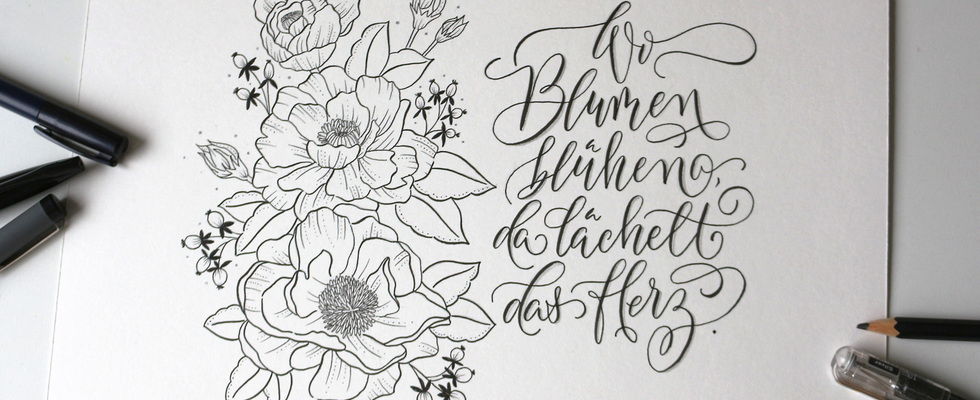 Wo
Blumen
blühen,
da lächelt
das Herz.